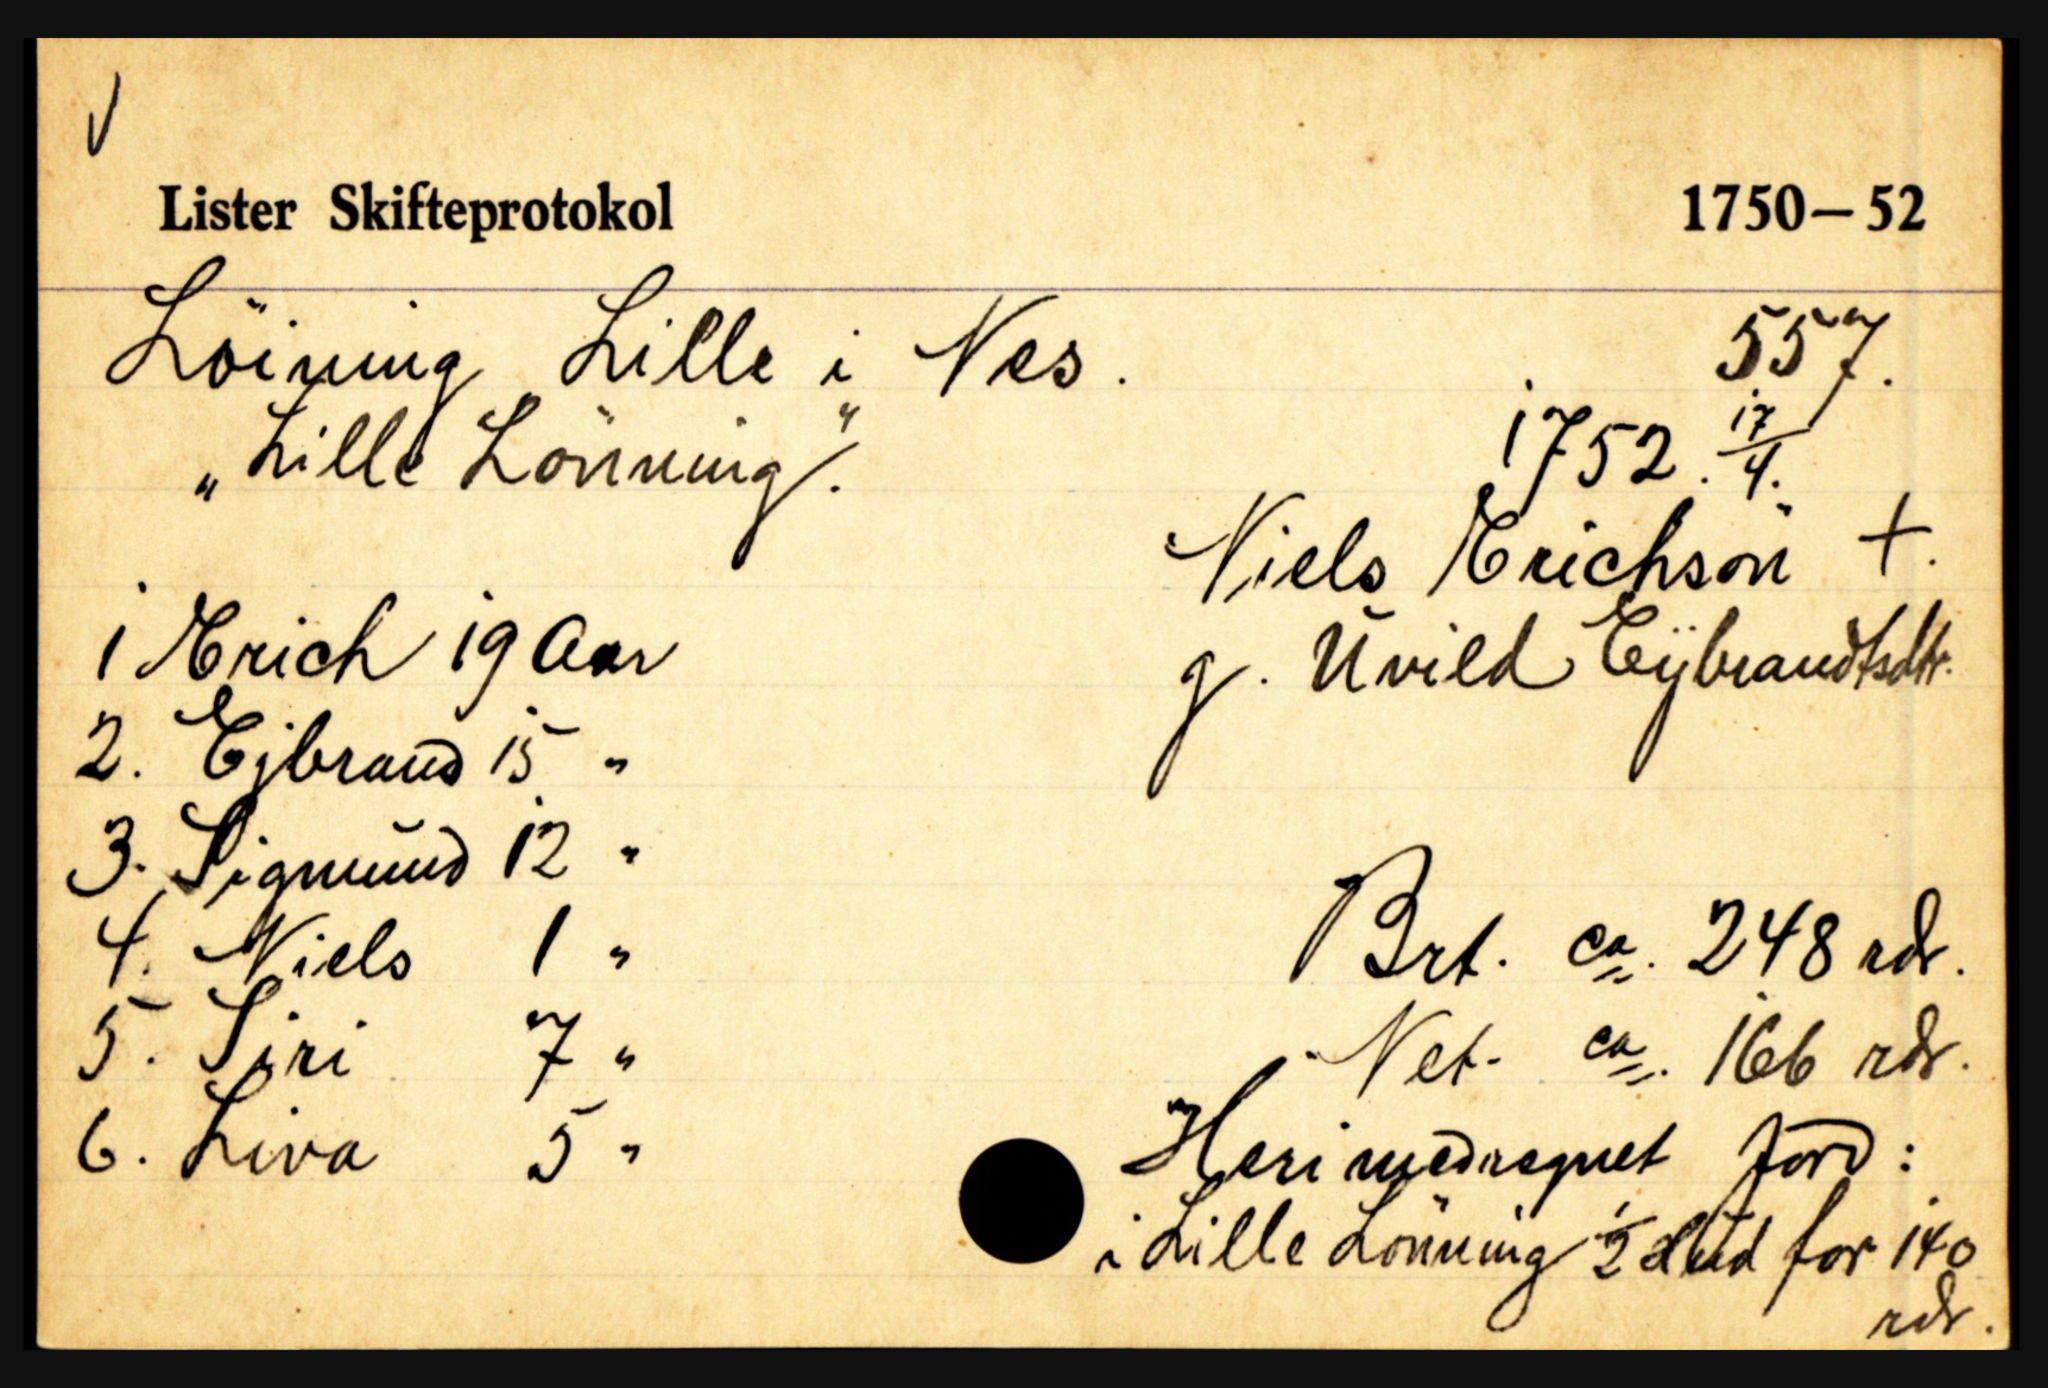 V
Lister Skifteprotokol 1750-52
Löining Lille i Nes. 557.
„Lille Lönning". 1752. 17/4.
Niels Erichsön +.
g. Uvild Eÿbrandtsdtr.
1 Erich 19 Aar
2. Ejbrand 15 "
3. Sigmund 12 "
4. Niels 1 "
5. Siri 7 "
6. Liva 5 "
Brt. ca. 248 rdr.
Net. ca. 166 rdr.
Heri medregnet jord:
i Lille Lönning 1/2 Hud for 140
rdr.